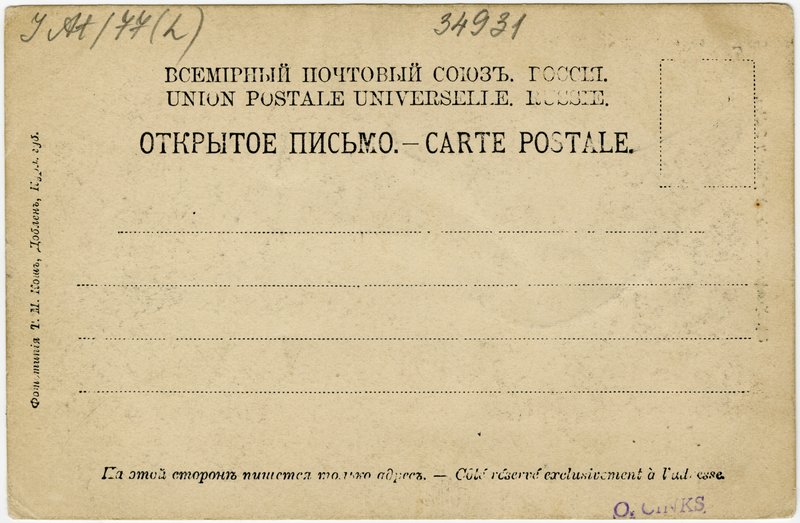 34931
ВСЕМІРНЫЙ ПОЧТОВЫЙ СОЮЗЪ. РОССІЯ.
UNION POSTALE UNIVERSELLE. RUSSIE.
ОТКРЫТОЕ ПИСЬМО.—CARTE POSTALE.
Фототипія Т. М. Кошъ, Добленъ, Курл. губ.
На этой сторонѣ пишется только адресъ. — Côté réservé exclusivement à l'adresse.
O. CINKS.